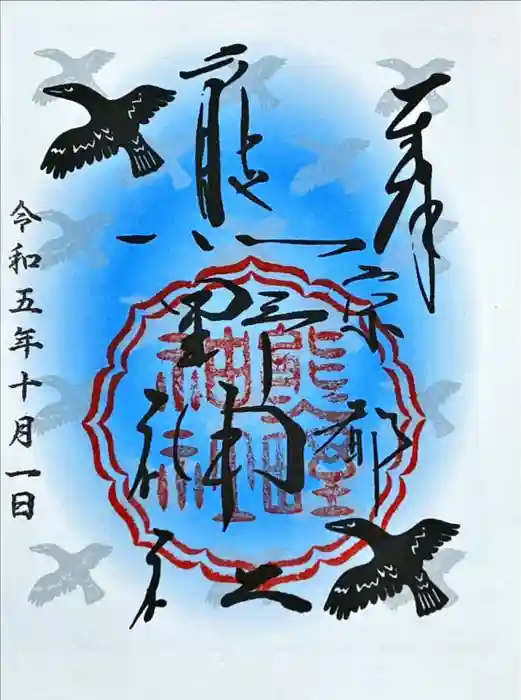 奉拝
京都
熊野神社
熊野
神社
令和五年十月一日